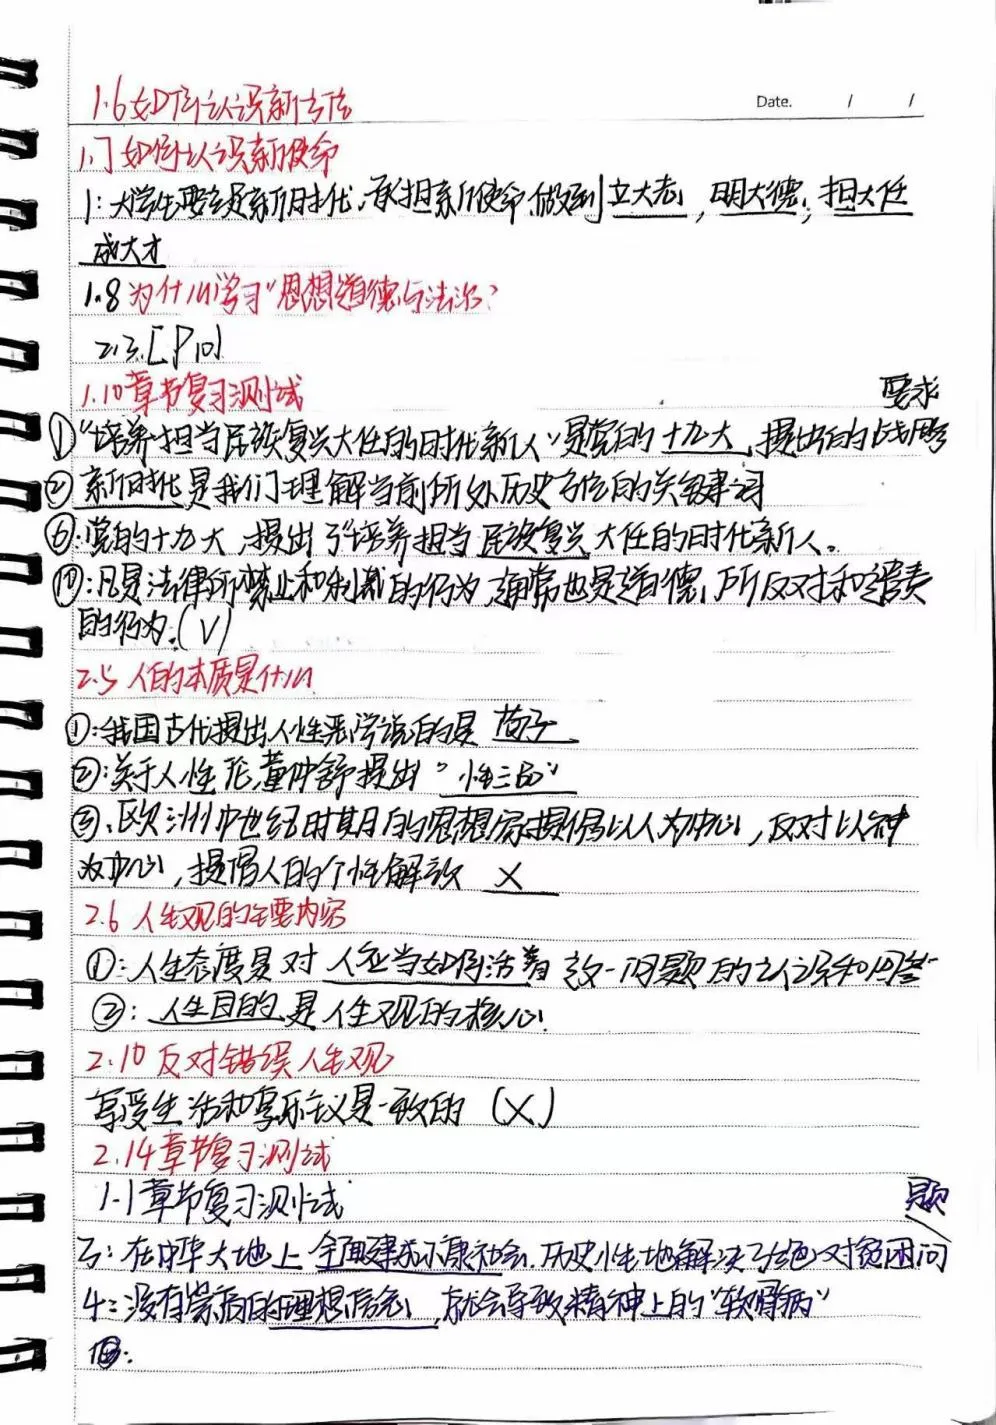 Date. / /
1.6 如何认识新方位
1.7 如何认识新使命
1:大学生要立足新时代,承担新使命,做到立大志,明大德,担大任
成大才
1.8 为什么学习“思想道德与法治?
2.3.[P10]
1.10章节复习测试
要求
①“培养担当民族复兴大任的时代新人”是党的十九大提出的战略
②新时代是我们理解当前所处历史方位的关键词
⑥:党的十九大,提出了“培养担当民族复兴大任的时代新人。
:凡是法律所禁止和制裁的行为,通常也是道德,所反对和谴责
的行为.(√)
2.5 人的本质是什么
①:我国古代提出人性恶学说的是 荀子
②:关于人性论,董仲舒提出“性三品”
③.欧洲中世纪时期的思想家提倡以人为中心,反对以神
为中心,提倡人的个性解放 X
2.6 人生观的主要内容
①:人生态度是对 人应当如何活着 这一问题的认识和回答
②:人生目的是人生观的核心
2.10 反对错误人生观
享受生活和享乐主义是一致的 (X)
2.14章节复习测试
1-1章节复习测试
题
3:在中华大地上全面建成小康社会,历史性地解决了绝对贫困问
4:没有崇高的理想信念,就会导致精神上的“软骨病”